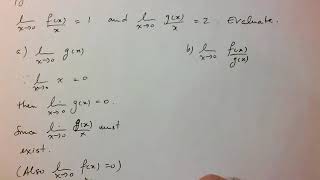 lim x→0 f(x)/x = 1 and lim x→0 g(x)/x = 2. Evaluate.
a) lim x→0 g(x)
b) lim x→0 f(x)/g(x)
∵ lim x→0 x = 0
then lim x→0 g(x) = 0.
Since lim x→0 g(x)/x must
exist.
(Also lim x→0 f(x) = 0)